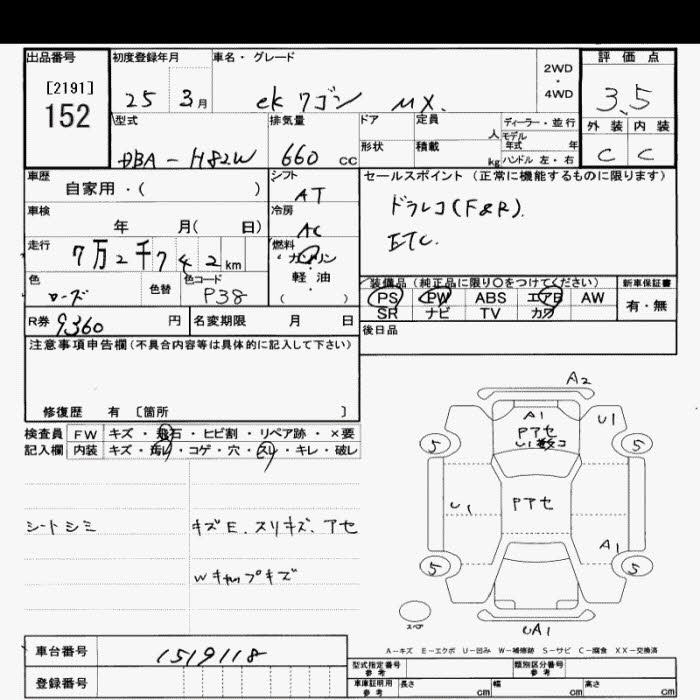 出品番号
[2191]
152
初度登録年月
25 3月
車名・グレード
ek ワゴン MX.
2WD
・
4WD
評価点
3.5
外装 内装
C C
型式
DBA-H82W
排気量
660 cc
ドア
形状
定員
人
積載
kg
ディーラー・並行
モデル
年式 年
ハンドル 左・右
車歴
自家用・( )
シフト
AT
セールスポイント(正常に機能するものに限ります)
ドラレコ(F&R).
ETC.
車検
年 月( 日)
冷房
AC
走行
7万2千742km
燃料
ガソリン
・
軽油
( )
色
ローズ
色替
色コード
P38
装備品(純正品に限り○をつけてください)
PS PW ABS エアB AW
SR ナビ TV カワ
新車保証書
有・無
R券 9360 円
名変期限 月 日
後日品
注意事項申告欄(不具合内容等は具体的に記入して下さい)
修復歴 有 [箇所 ]
検査員 FW キズ・飛石・ヒビ割・リペア跡・×要
記入欄 内装 キズ・汚レ・コゲ・穴・スレ・キレ・破レ
シートシミ
キズE.スリキズ、アセ
Wキャップキズ
A2
A1
Pアセ
U1数コ
U1
5 5
U1
Pアセ
A1
5 5
スペア
UA1
A-キズ E-エクボ U-凹み W-補修跡 S-サビ C-腐食 XX-交換済
車台番号
1519118
登録番号
型式指定番号
参考
類別区分番号
参考
車庫証明用
参考
長さ cm
幅 cm
高さ cm